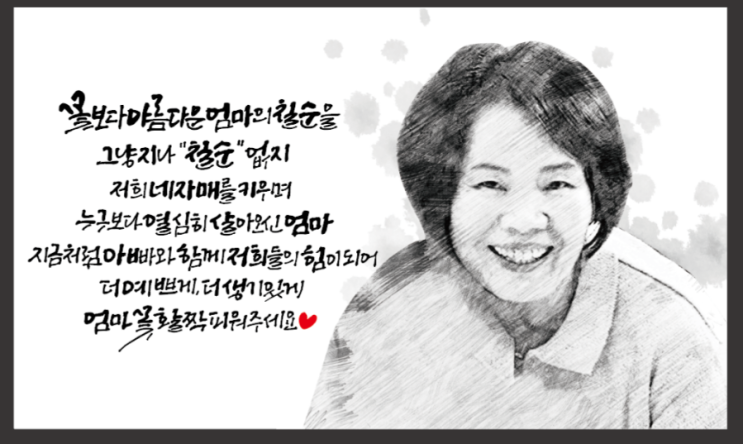 꽃보다 아름다운 엄마의 칠순을
그냥 지나 "칠순" 없지
저희 네자매를 키우며
누구보다 열심히 살아오신 엄마
지금처럼 아빠와 함께 저희들의 힘이되어
더 예쁘게, 더 생기있게
엄마 꽃 활짝 피워주세요